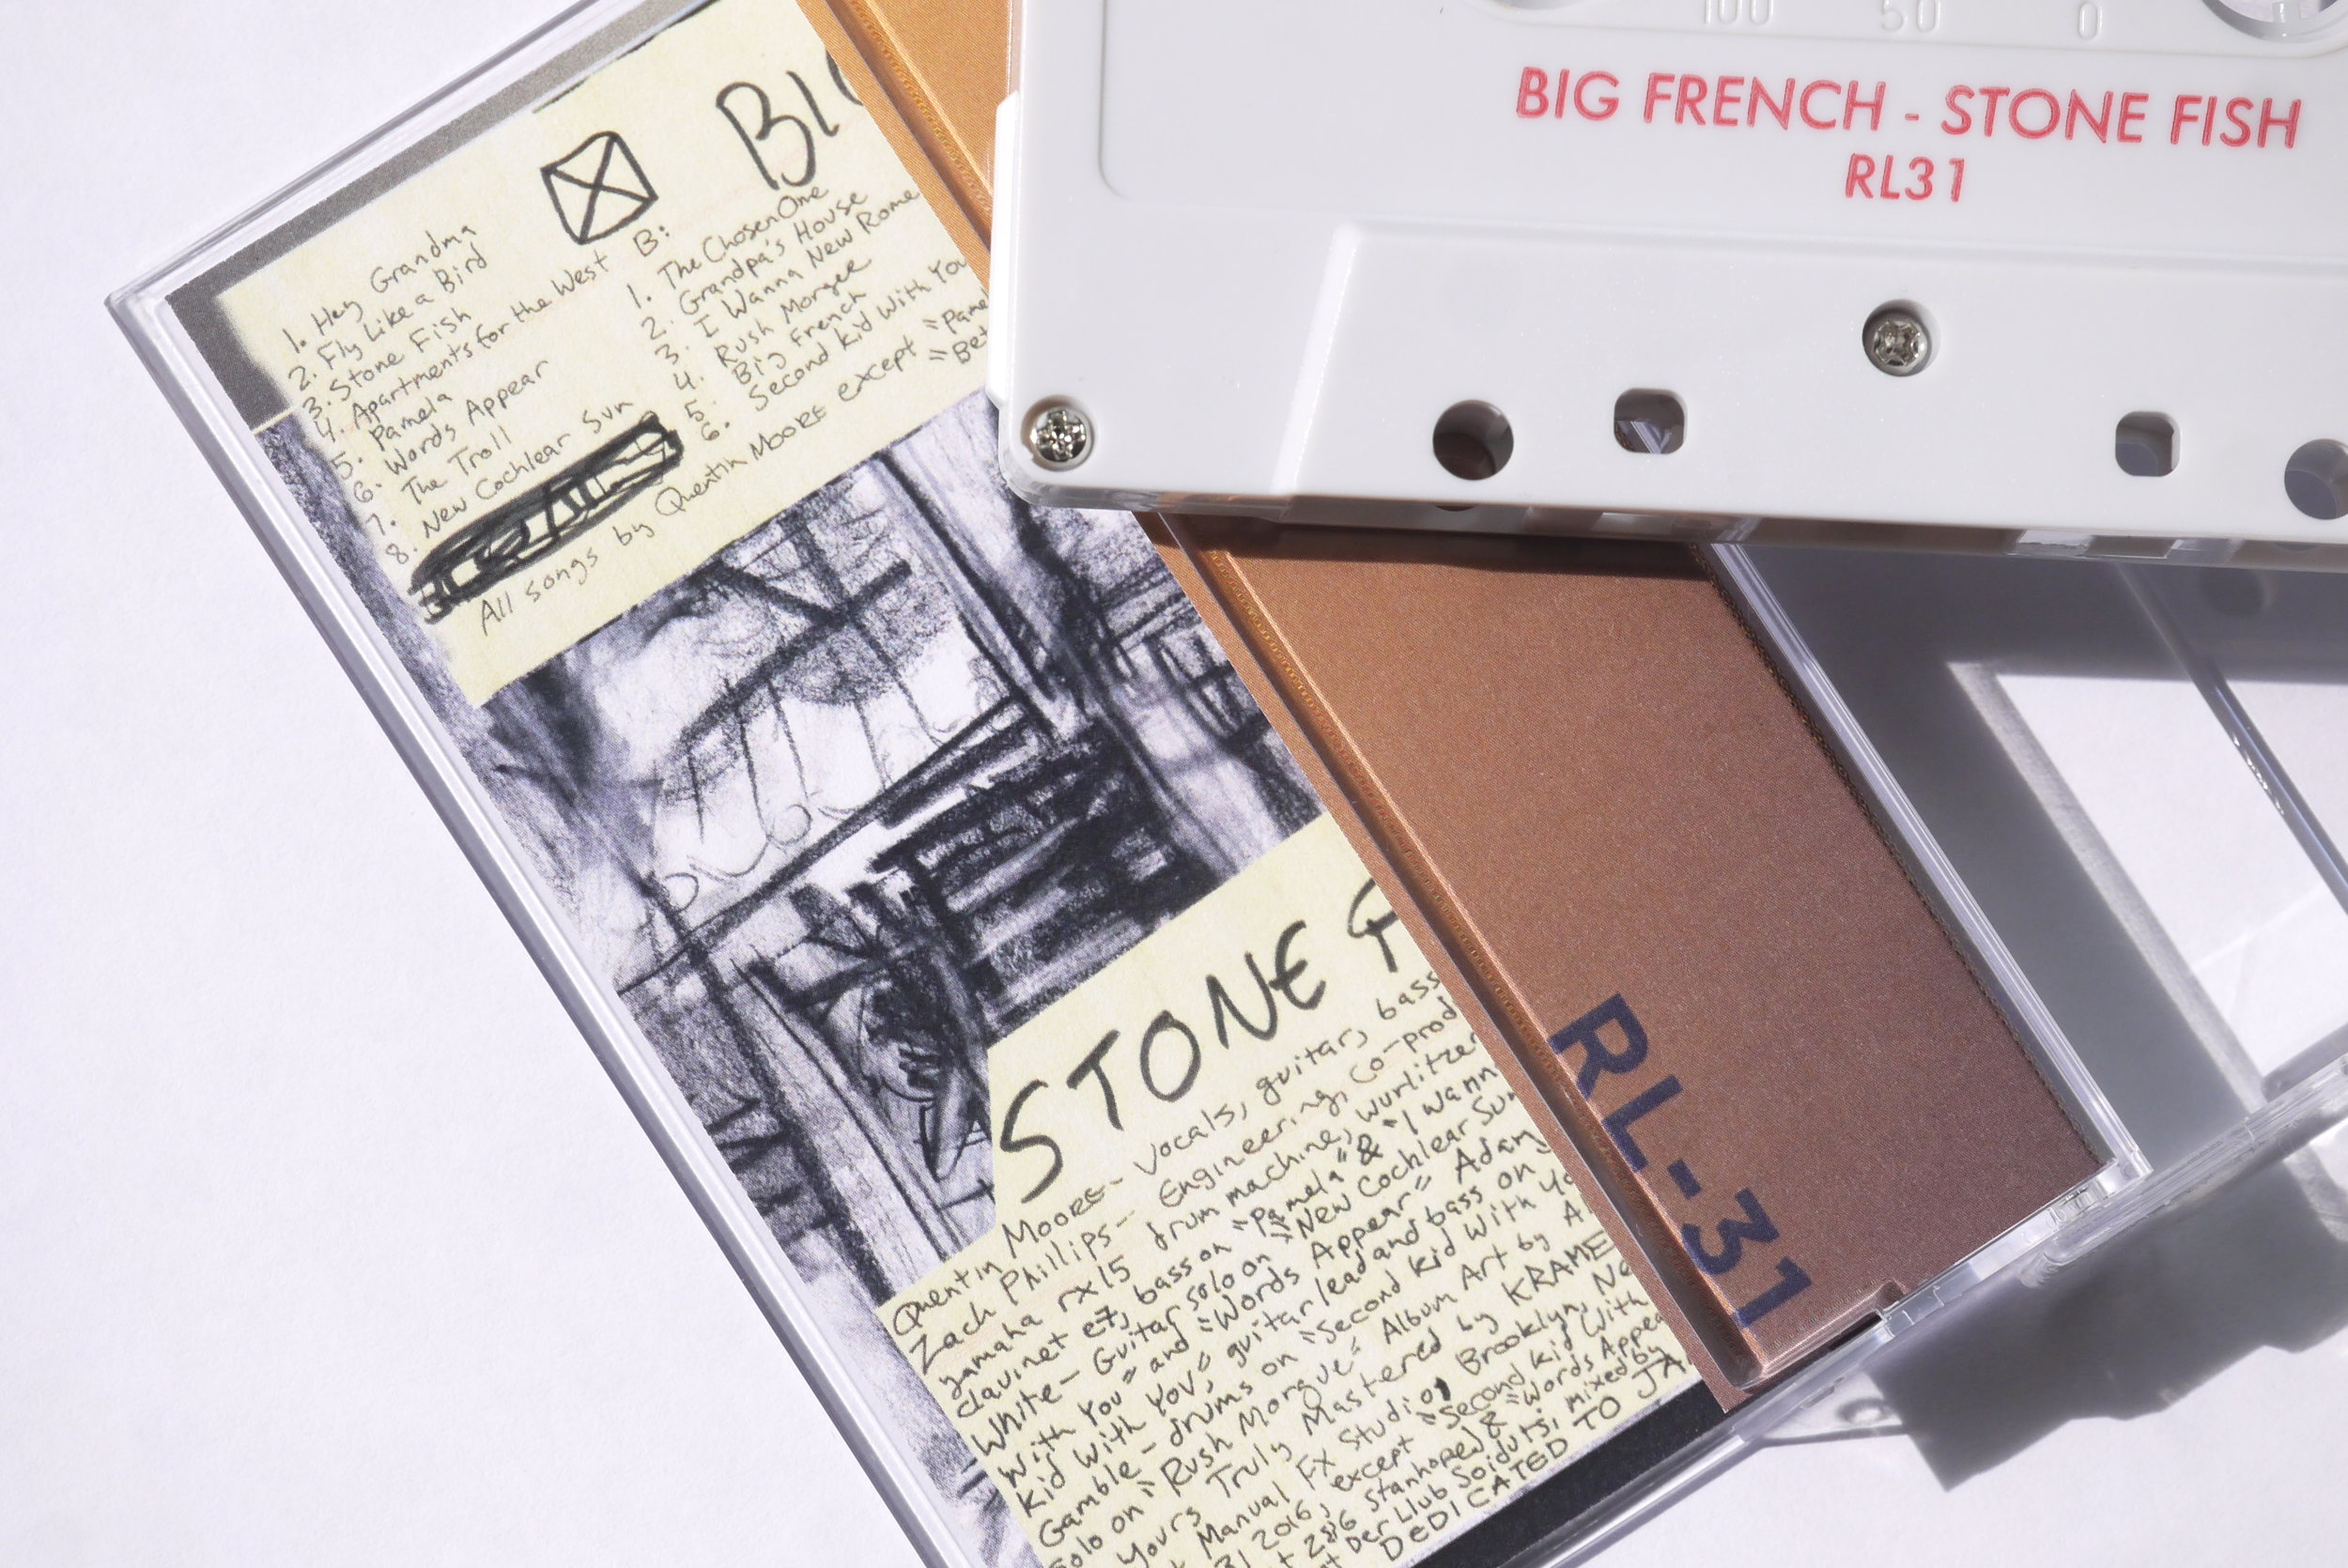 100 50 0
BIG FRENCH - STONE FISH
RL31
BI
1. Hey Grandma
2. Fly Like a Bird
3. Stone Fish
4. Apartments for the West
5. Pamela
6. Words Appear
7. The Troll
8. New Cochlear Sun
B:
1. The Chosen One
2. Grandpa's House
3. I Wanna New Rome
4. Rush Morgue
5. Big French
6. Second Kid With You
All songs by Quentin MOORE except "Pame
"Bet
STONE F
Quentin MOORE - vocals, guitars, bass
Zach Phillips - Engineering, Co-prod
yamaha rx15 drum machine, wurlitzer
clavinet e7, bass on "Pamela" & "I wann
White - Guitar solo on "New Cochlear Sun
With You" and "Words Appear" Adam
Kid With You," guitar lead and bass on
Gamble - drums on "Second Kid With Yo
Solo on "Rush Morgue" Album Art by A
Yours Truly Mastered by KRAME
Manual FX Studio, Brooklyn, Ne
31 2016, except "Second Kid With
2016 Stanhope & "Words Appea
Der Llub Soiduts, mixed by
DEDICATED TO JA
RL-31